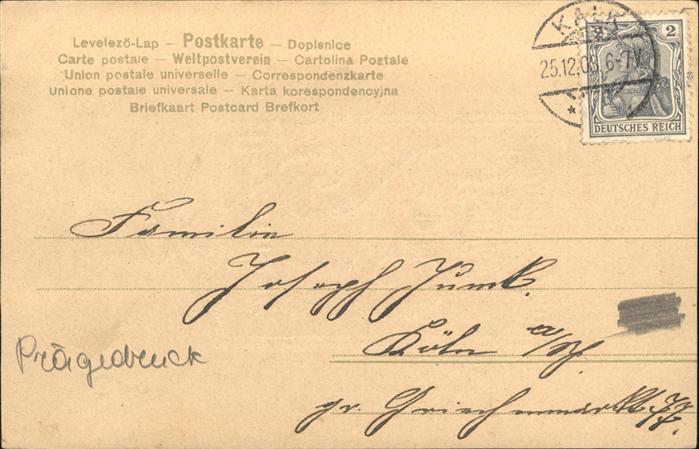 Levelező-Lap – Postkarte – Dopisnice
Carte postale – Weltpostverein – Cartolina Postale
Union postale universelle – Correspondenzkarte
Unione postale universale – Karta korespondencyjna
Briefkaart Postcard Brefkort
KALK
25.12.
6-7
2 2
DEUTSCHES REICH
Familie
Joseph Junk.
Köln a/Rh.
gr. Griechenmarkt
Prägedruck